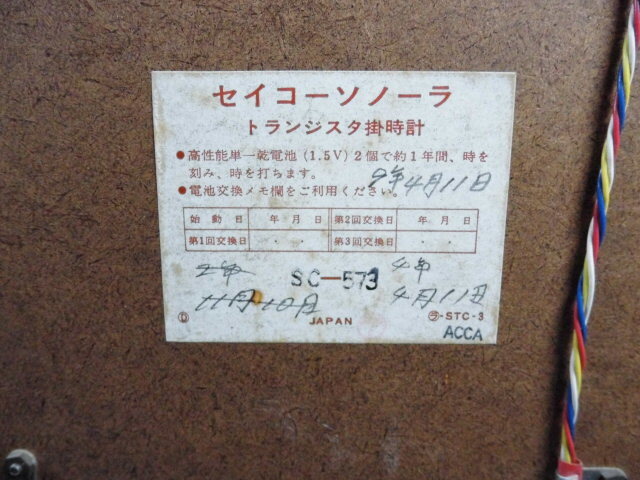 セイコーソノーラ
トランジスタ掛時計
●高性能単一乾電池(1.5V)2個で約1年間、時を
刻み、時を打ちます。
●電池交換メモ欄をご利用ください。
9年4月11日
始動日 年月日 第2回交換日 年月日
第1回交換日 ・・ 第3回交換日 ・・
2年 SC-573 4年
11月10月 4月11日
Ⓓ JAPAN ㋶-STC-3
ACCA